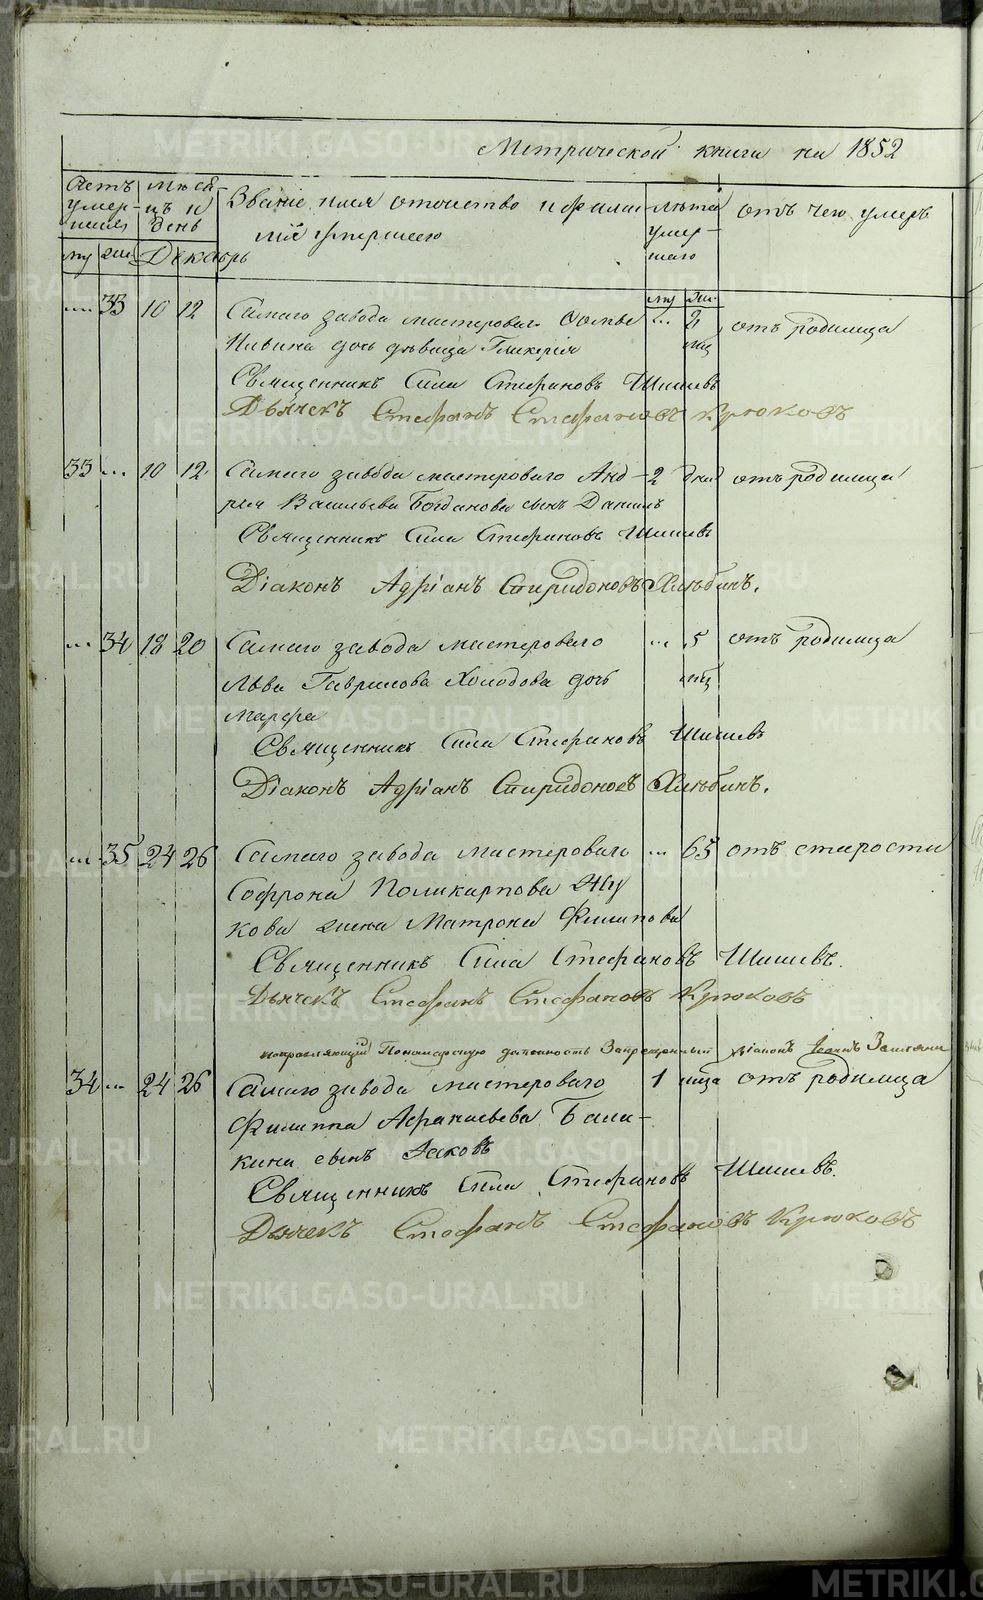 Метрической книги на 1852
Счетъ умер-шихъ
Мѣсяцъ и день
Званіе, имя отчество и фами-
лія умершаго
лѣта умер-шаго
отъ чего умеръ
му жен Декабрь
му жен.
... 33 10 12 Самаго завода мастероваго ... 2 отъ родимца
дочь дѣвица Гликерія мѣц
Священникъ Сила Стефановъ Шишевъ
Дьячекъ Стефанъ Стефановъ Крюковъ
33 ... 10 12 Самаго завода мастероваго Анд- 2 дня отъ родимца
рея Васильева Богданова сынъ Даніилъ
Священникъ Сила Стефановъ Шишевъ
Діаконъ Адріанъ Спиридоновъ Хлѣбинъ.
... 34 18 20 Самаго завода мастероваго ... 5 отъ родимца
Льва Гаврилова Холодова дочь мѣц
Марфа
Священникъ Сила Стефановъ Шишевъ
Діаконъ Адріанъ Спиридоновъ Хлѣбинъ.
... 35 24 26 Самаго завода мастероваго ... 65 отъ старости
Софрона Поликарпова Жу
кова жена Матрона Филипова
Священникъ Сила Стефановъ Шишевъ.
Дьячекъ Стефанъ Стефановъ Крюковъ
исправляющій Пономарскую должность Запрещенный діаконъ Іоаннъ
34 ... 24 26 Самаго завода мастероваго 1 мца отъ родимца
Филиппа Афанасьева Бала-
кина сынъ Іаковъ
Священникъ Сила Стефановъ Шишевъ.
Дьячекъ Стефанъ Стефановъ Крюковъ
METRIKI.GASO-URAL.RU